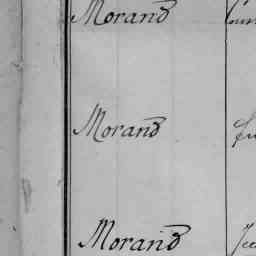 Morand
Morand
Morand